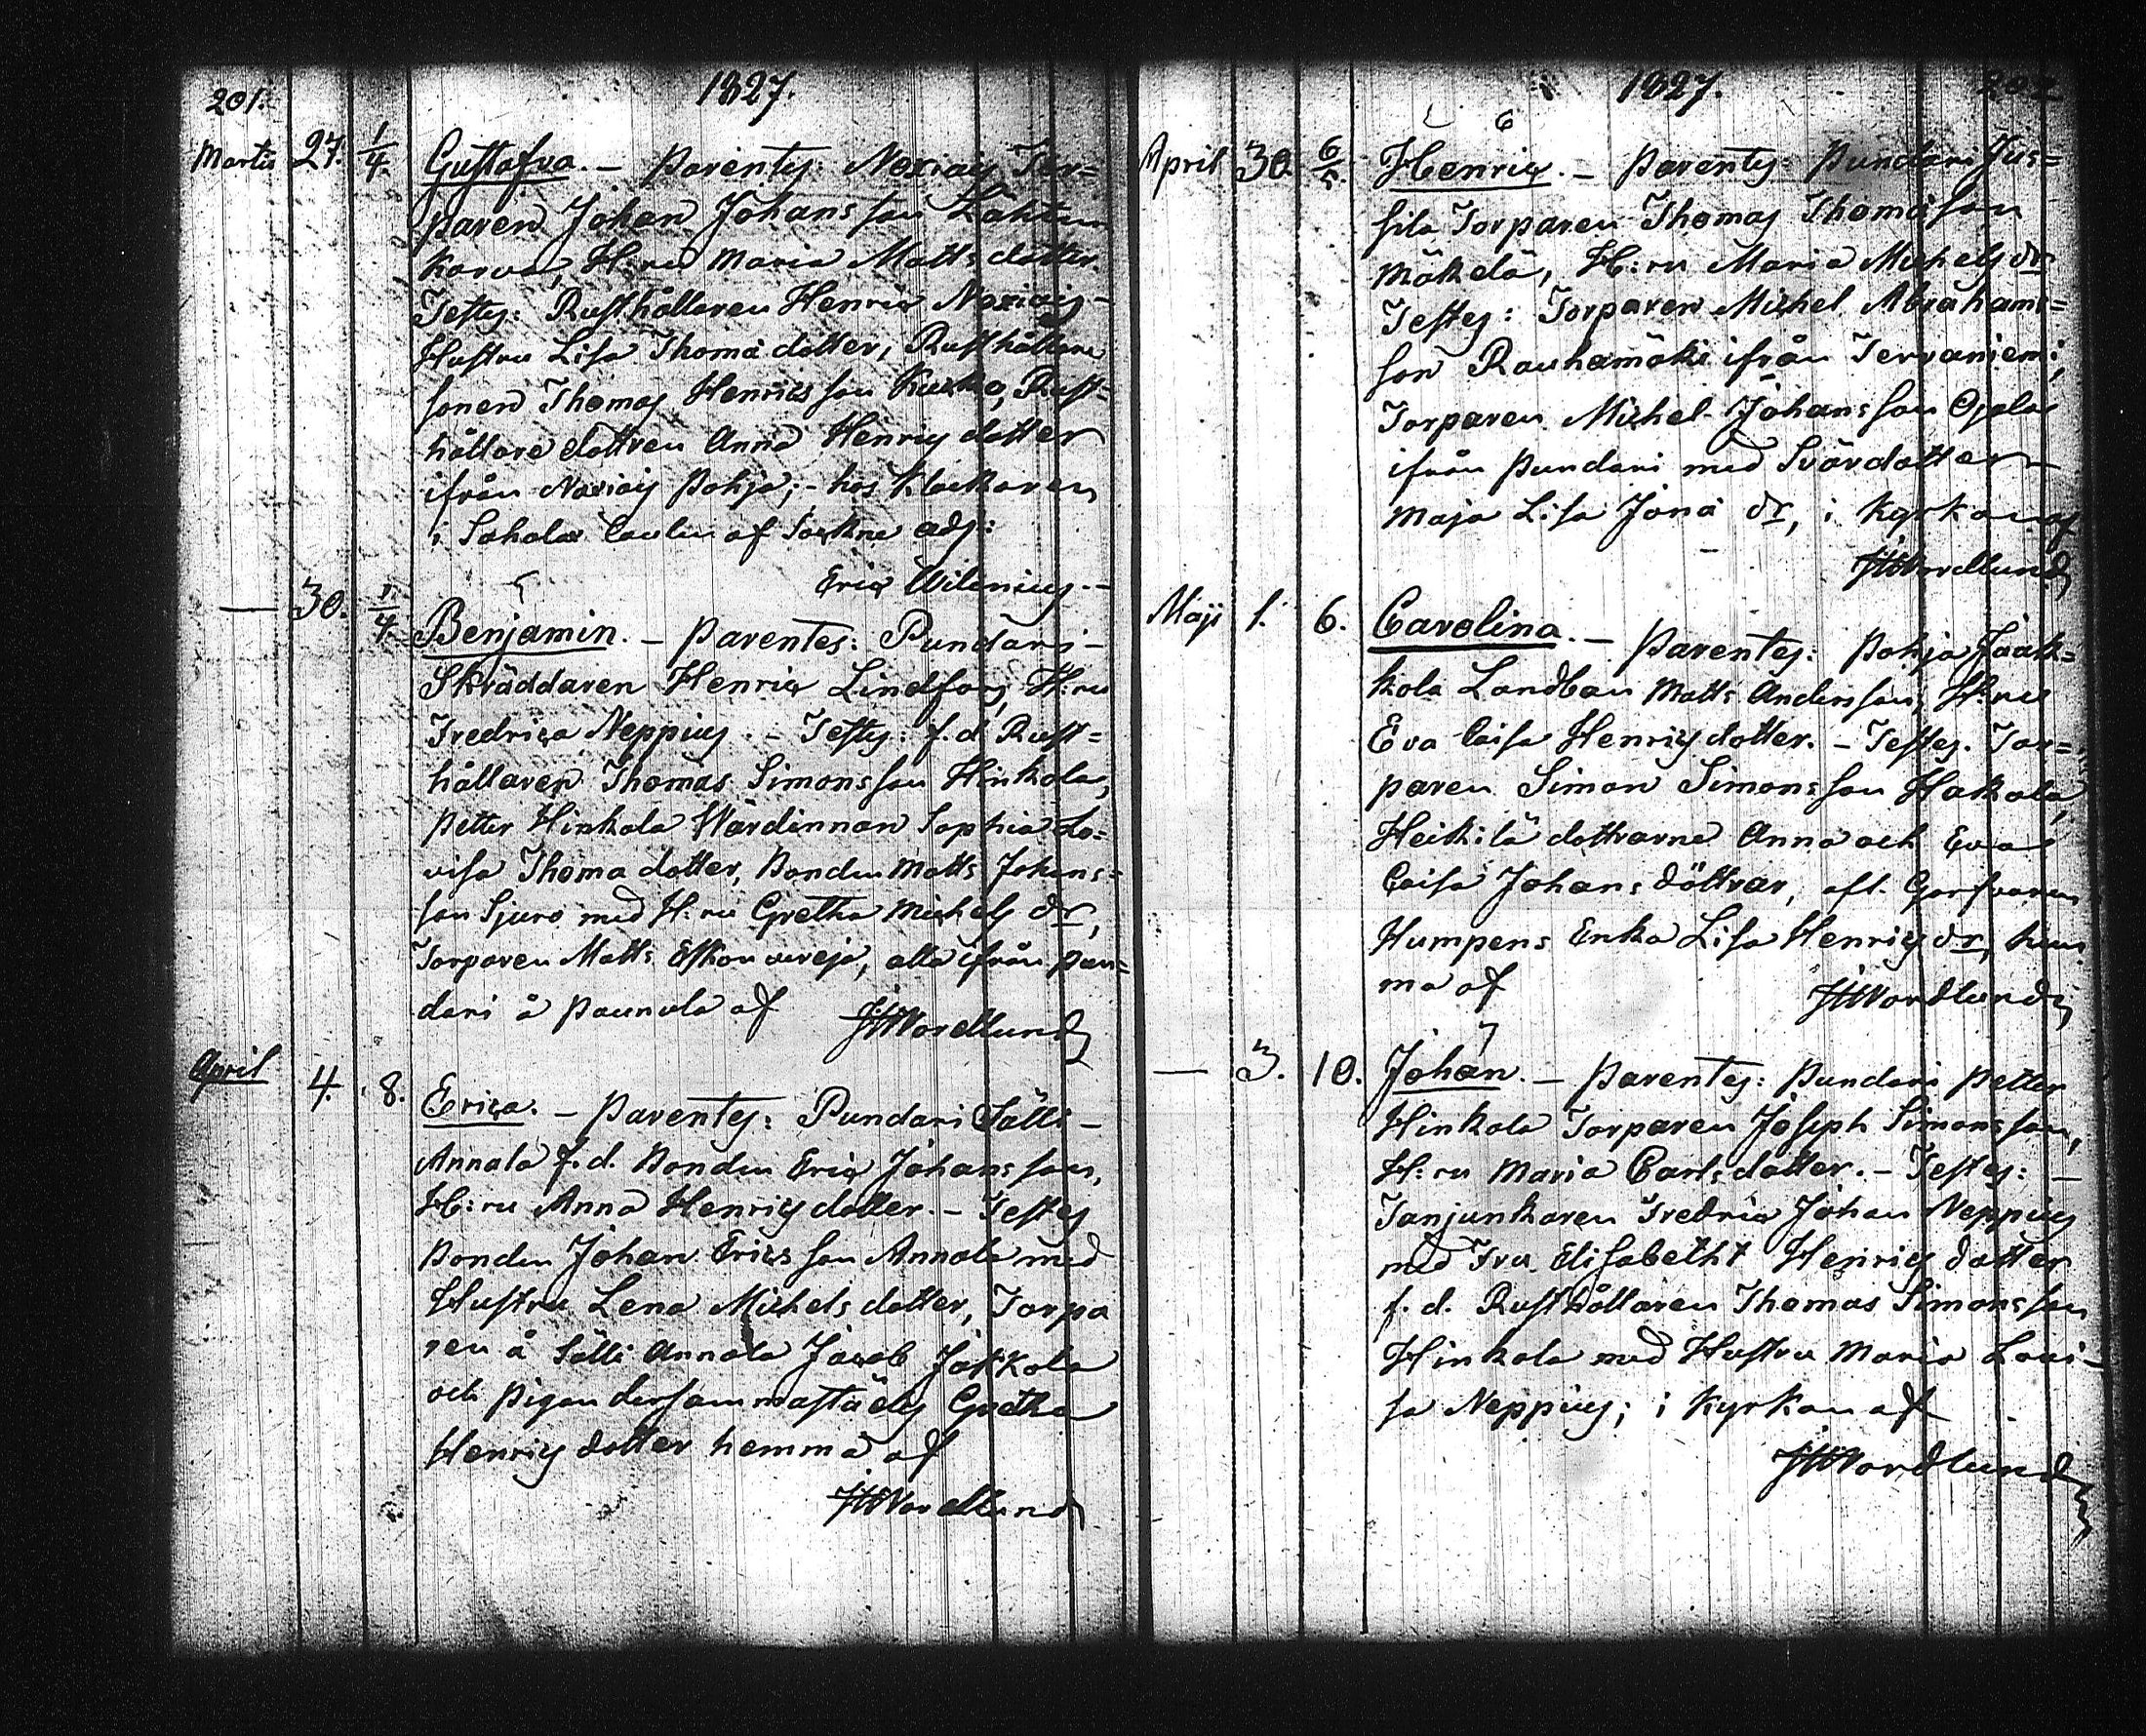 201.
1827.
Martii 27. 1/4. Gustafva. – Parentes: Noxiais Tor=
paren Johan Johansson Lahten
Korva, H:ru Maria Matts dotter.
Testes: Rusthållaren Henric Noxiais
Hustru Lisa Thomä dotter, Rusthållare
sonen Thomas Henricsson Kuxko, Rust=
hållare dottren Anna Henrics dotter
ifrån Noxiais Pohja; – hos Klockaren
i Sahalax af Sockne adj:
Eric Wilenius. –
— 30. 1/4. Benjamin. – Parentes: Pundari –
Skräddaren Henric Lindfors, H:ru
Fredrica Neppius. – Testes: f.d. Rust=
hållaren Thomas Simonsson Hinkola,
Petter Hinkola Wärdinnan Sophia Lo=
visa Thoma dotter, Bonden Matts Johans=
son Sjuro med H:ru Gretha Michels dr,
Torparen Matts Eskonvereja, alla ifrån Pun=
dari å Paunola af JHNordlund
April 4. 8. Erica. – Parentes: Pundari Sälli –
Annala f.d. Bonden Eric Johansson,
H:ru Anna Henrics dotter. – Testes
Bonden Johan Ericsson Annala med
Hustru Lena Michels dotter, Torpa
ren å Sälli Annala Jacob Jakkola
och Pigan dersammastädes Gretha
Henrics dotter hemma af
JHNordlund
1827.
202
6
April 30. 6/5. Henric. – Parentes: Pundari Jus=
sila Torparen Thomas Thomäson
Mäkelä, H:ru Maria Michels dr
Testes: Torparen Michel Abrahams=
son Rauhamäki ifrån Tervaniemi,
Torparen Michel Johansson Ojala
ifrån Pundari med Svärdotter
Maja Lisa Jonä dr, i Kyrkan af
JHNordlund
Maji 1. 6. Carolina. – Parentes: Pohja Jaak=
kola Landbon Matts Andersson, H:ru
Eva Caisa Henrics dotter. – Testes. Tor=
paren Simon Simonsson Hakala,
Heikilä dottrarne Anna och Eva
Caisa Johans döttrar, afl. Garfvaren
Humpens Enka Lisa Henrics dr, hem
ma af JHNordlund
7
— 3. 10. Johan. – Parentes: Pundari Petter
Hinkola Torparen Joseph Simonsson,
H:ru Maria Carlsdotter. – Testes: –
Fanjunkaren Fredric Johan Neppius
med Fru Elisabetht Henrics dotter
f. d. Rusthållaren Thomas Simonsson
Hinkola med Hustru Maria Loui–
sa Neppius; i Kyrkan af
JHNordlund